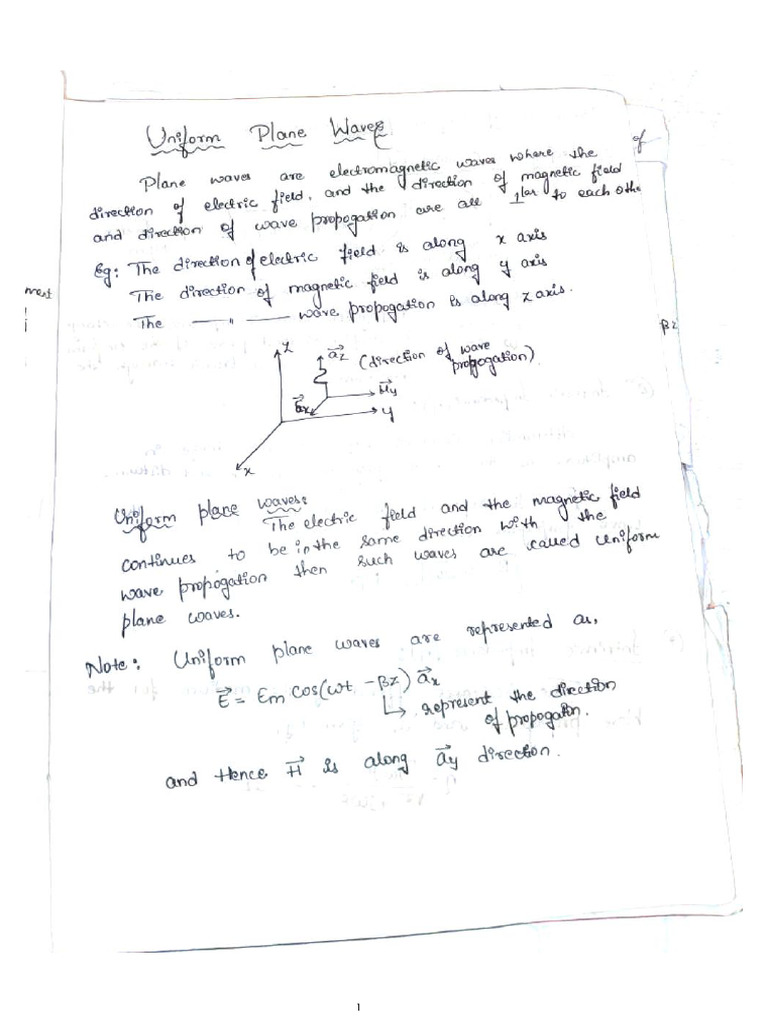 Uniform Plane Waves
of
Plane waves are electromagnetic waves where the
direction of electric field, and the direction of magnetic field
and direction of wave propogation are all ⊥lar to each othe
Eg: The direction of electric field is along x axis
The direction of magnetic field is along y axis
The —— " —— wave propogation is along z axis.
ment
βz
z
a⃗z (direction of wave
propogation).
H⃗y
E⃗x
y
x
Uniform plane waves:
The electric field and the magnetic field
continues to be in the same direction with the
wave propogation then such waves are called uniform
plane waves.
Note: Uniform plane waves are represented as,
E⃗ = Em cos(ωt - βz) a⃗x
↳ represent the direction
of propogation.
and Hence H⃗ is along a⃗y direction.
1